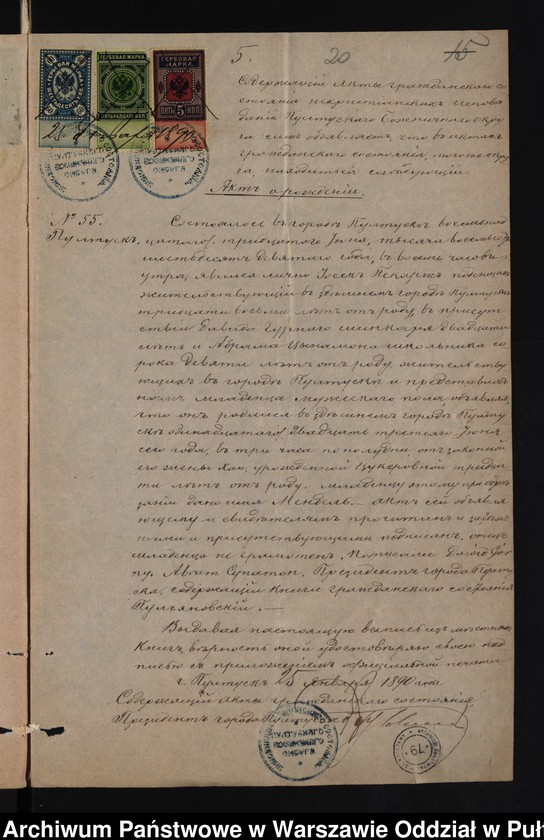 5. 20 15
ГЕРБОВАЯ МАРКА
ГЕРБОВАЯ МАРКА
ГЕРБОВАЯ МАРКА
ПЯТЬ 5 КОП
Содержащій Акты гражданскаго со
стоянія нехристіанскихъ исповѣ
даній Пултускаго окру
га симъ объявляетъ, что въ актахъ
гражданскаго состоянія, того же окру
га, находится слѣдующій:
Актъ о рожденіи
№ 55.
Пултускъ.
Состоялось въ городѣ Пултускѣ восемнад
цатаго, тридцатаго Іюня, тысяча восемьсотъ
шестьдесятъ девятаго года, въ восемь часовъ
утра, явился лично Іосекъ Пекаржъ
жительствующій въ здѣшнемъ городѣ Пултускѣ
тридцати восьми лѣтъ отъ роду, въ присут
ствіи Давида шинкаря двадцати
лѣтъ и Абрама Цынамона школьника со
рока девяти лѣтъ отъ роду жительству
ющихъ въ городѣ Пултускѣ и представилъ
намъ младенца мужескаго пола, объявляя,
что онъ родился въ здѣшнемъ городѣ Пулту
скѣ одинадцатаго двадцать третьяго Іюня
сего года, въ три часа по полудни отъ законной
его жены урожденной Цукеровной тридца
ти лѣтъ отъ роду. Младенцу этому при обрѣ
заніи дано имя Мендель. — Актъ сей объявля
ющему и свидѣтелямъ прочитанъ и
нами и присутствующими подписанъ, отецъ
младенца не грамотенъ. Подписали Давид
Президентъ города Пулту
ска, содержащій книги гражданскаго состоянія
Пульяновскій. —
Выдавая настоящую выпись изъ мѣстныхъ
Книгъ, вѣрность оной удостовѣряю своею под
писью съ приложеніемъ официальной печати
г. Пултускъ 25 января 1890 года
Содержащій Акты гражданскаго состоянія
Президентъ города Пултуска
79
Archiwum Państwowe w Warszawie Oddział w Puł